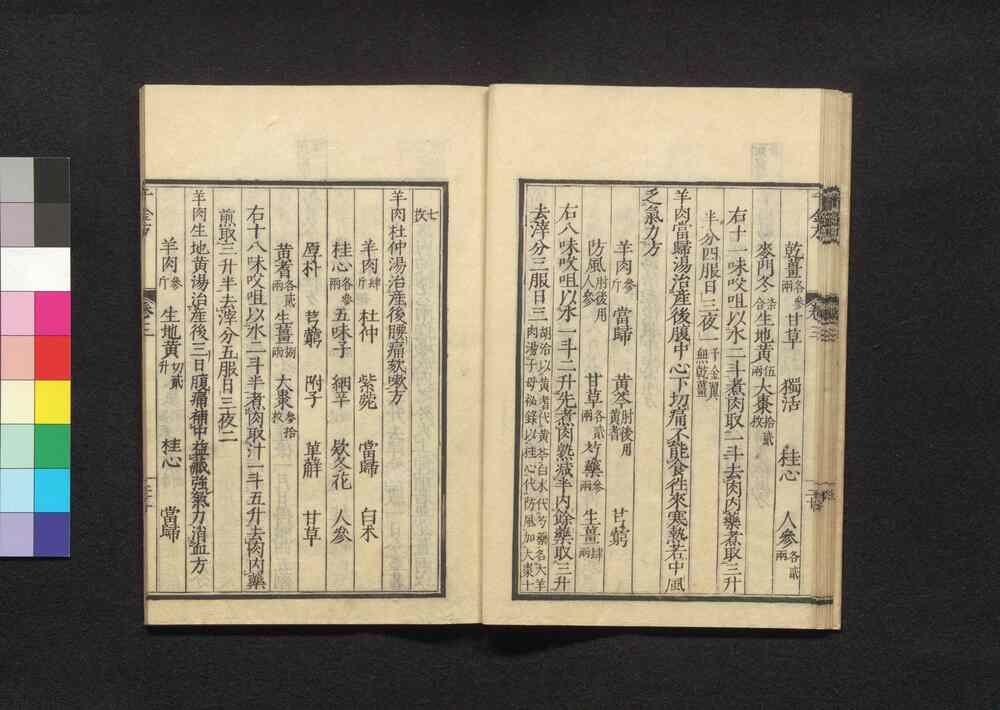 乾薑各參兩 甘草 獨活 桂心 人參各貳兩
麥門冬柒合 生地黄伍兩 大棗拾貳枚
右十一味㕮咀以水二斗煮肉取一斗去肉内藥煮取三升
半分四服日三夜一千金翼無乾薑
羊肉當歸湯治産後腹中心下切痛不能食往來寒熱若中風
乏氣力方
羊肉參斤 當歸 黄芩肘後用黄耆 芎藭
防風肘後用人參 甘草各貳兩 芍藥參兩 生薑肆兩
右八味㕮咀以水一斗二升先煮肉熟減半内餘藥取三升
去滓分三服日三胡洽以黄耆代黄芩白朮代芍藥名大羊肉湯子母祕録以桂心代防風加大棗十
七枚
羊肉杜仲湯治産後腰痛欬嗽方
羊肉肆斤 杜仲 紫菀 當歸 白朮
桂心各參兩 五味子 細辛 欵冬花 人參
厚朴 芎藭 附子 萆薢 甘草
黄耆各貳兩 生薑捌兩 大棗參拾枚
右十八味㕮咀以水二斗半煮肉取汁一斗五升去肉内藥
煎取三升半去滓分五服日三夜二
羊肉生地黄湯治産後三日腹痛補中益臟強氣力消血方
羊肉參斤 生地黄切貳升 桂心 當歸
千金方 卷三